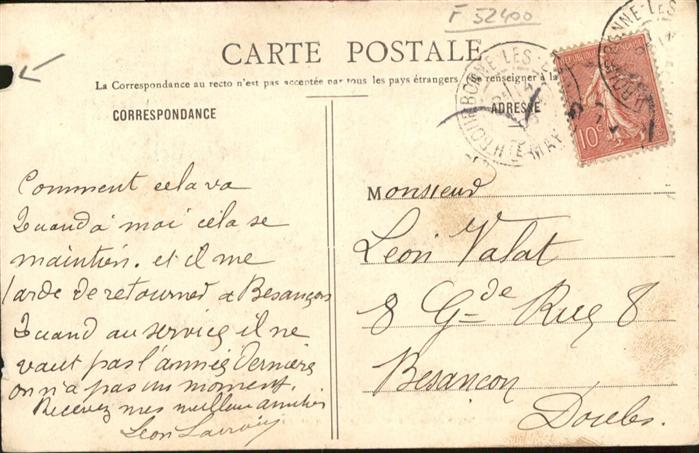 F 52400
CARTE POSTALE
La Correspondance au recto n'est pas acceptée par tous les pays étrangers (Se renseigner à la
CORRESPONDANCE
ADRESSE
10c
Comment cela va
Quand à moi cela se
maintien. et il me
tarde de retourner a Besançon
Quand au service il ne
vaut pas l'année dernière
on n'a pas un moment.
Recevez mes meilleur amitiés
Léon
Monsieur
Léon Valat
8 Gde Rue 8
Besançon
Doubs.
BOURBONNE-LES-B
HTE MAR